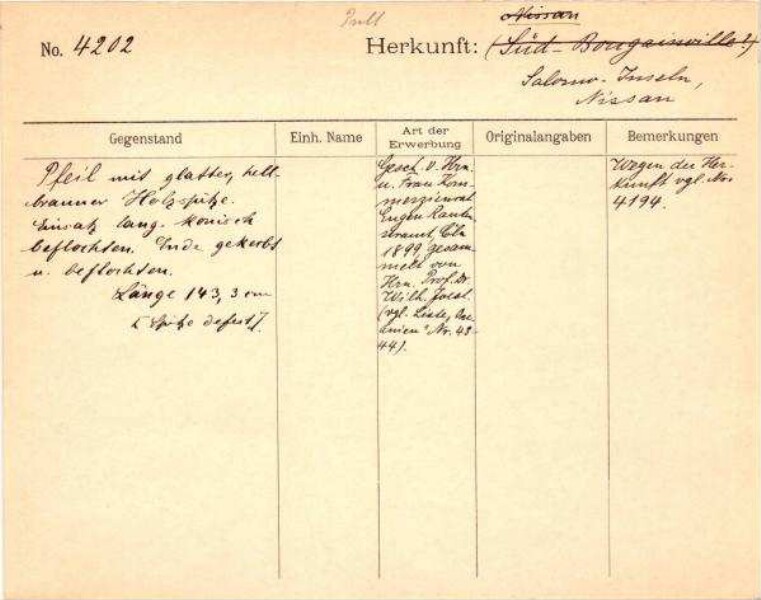 Nissan
No. 4202
Herkunft: (Süd-Bougainville?)
Salomo-Inseln,
Nissan
Gegenstand
Einh. Name
Art der
Erwerbung
Originalangaben
Bemerkungen
Pfeil mit glatter, hell-
brauner Holzspitze.
Einsatz lang-konisch
beflochten. Ende gekerbt
u. beflochten.
Länge 143,3 cm
[Spitze defekt]
Gesch. v. Hrn.
u. Frau Kom-
merzienrat
Eugen Rauten-
strauch, Cöln
1899, gesam-
melt von
Hrn. Prof. Dr.
Wilh. Joest.
(vgl. Liste "Oce-
anien" Nr. 43-
44).
Wegen der Her-
kunft vgl. No.
4194.